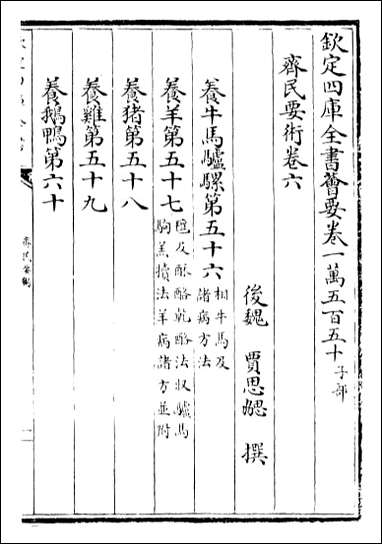 欽定四庫全書薈要卷一萬五百五十子部
齊民要術卷六
後魏 賈思勰 撰
養牛馬驢騾第五十六相牛馬及
諸病方法
養羊第五十七氊及酥酪乾酪法収驢馬
駒羔犢法羊病諸方並附
養猪第五十八
養雞第五十九
養鵝鴨第六十
齊民要術
一